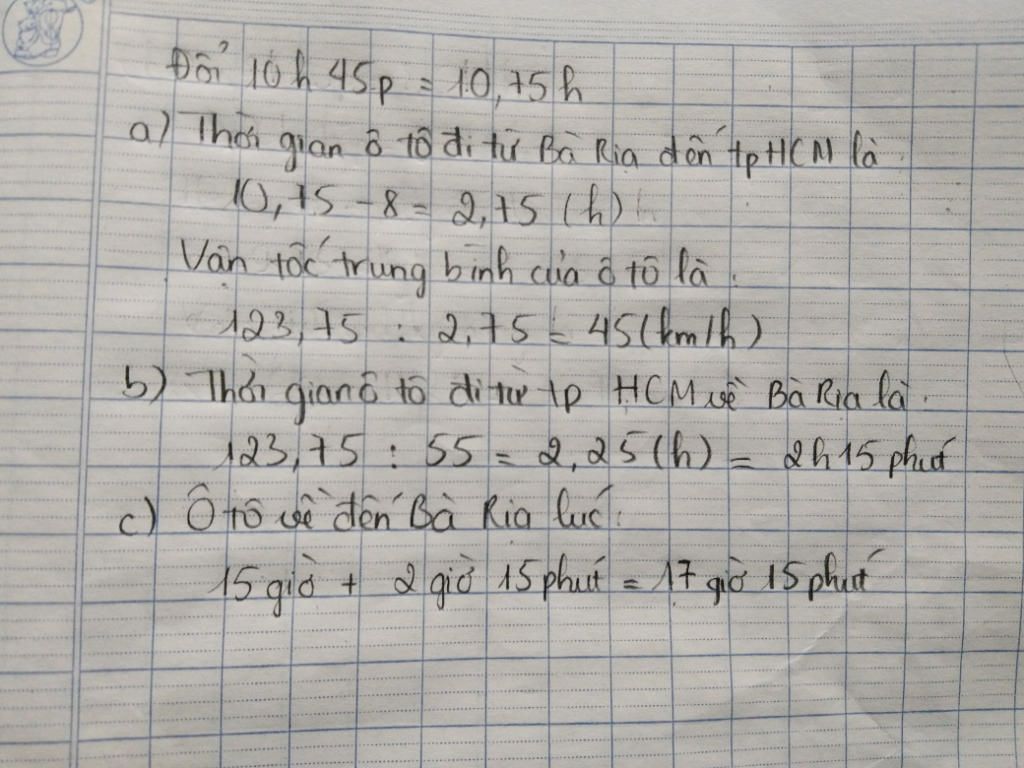 Đổi 10h 45p = 10,75h
a) Thời gian ô tô đi từ Bà Rịa đến tp HCM là
10,75 - 8 = 2,75 (h)
Vận tốc trung bình của ô tô là.
123,75 : 2,75 = 45 (km/h)
b) Thời gian ô tô đi từ tp HCM về Bà Rịa là.
123,75 : 55 = 2,25 (h) = 2h 15 phút
c) Ô tô về đến Bà Rịa lúc:
15 giờ + 2 giờ 15 phút = 17 giờ 15 phút